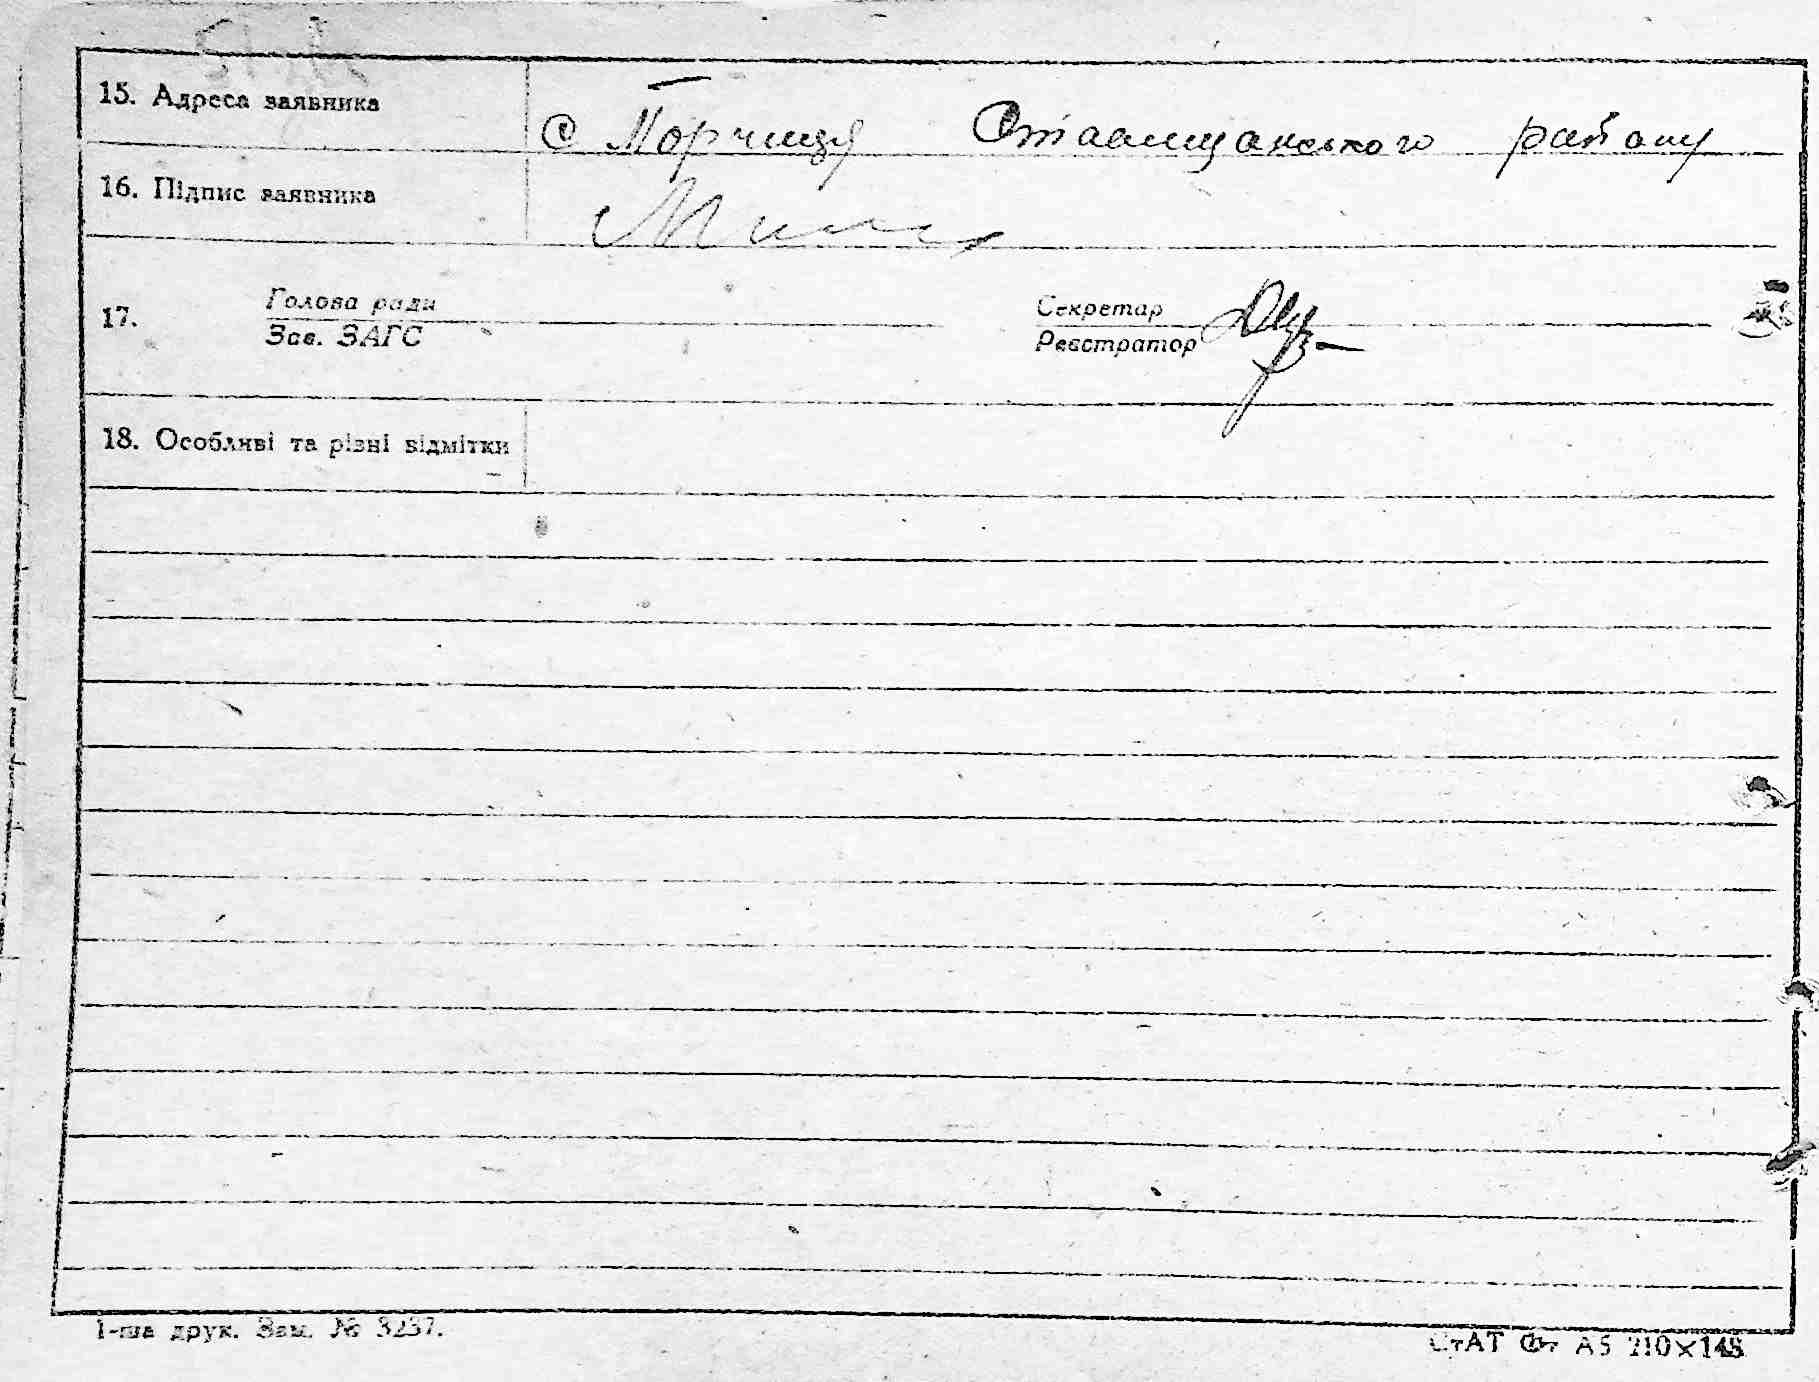 15. Адреса заявника
с Торчиця Ставищанського району
16. Підпис заявника
17. Голова ради
Зав. ЗАГС
Секретар
Реєстратор
18. Особливі та різні відмітки
1-ша друк. Зам. № 3237.
СтАТ Ф7 А5 210×148